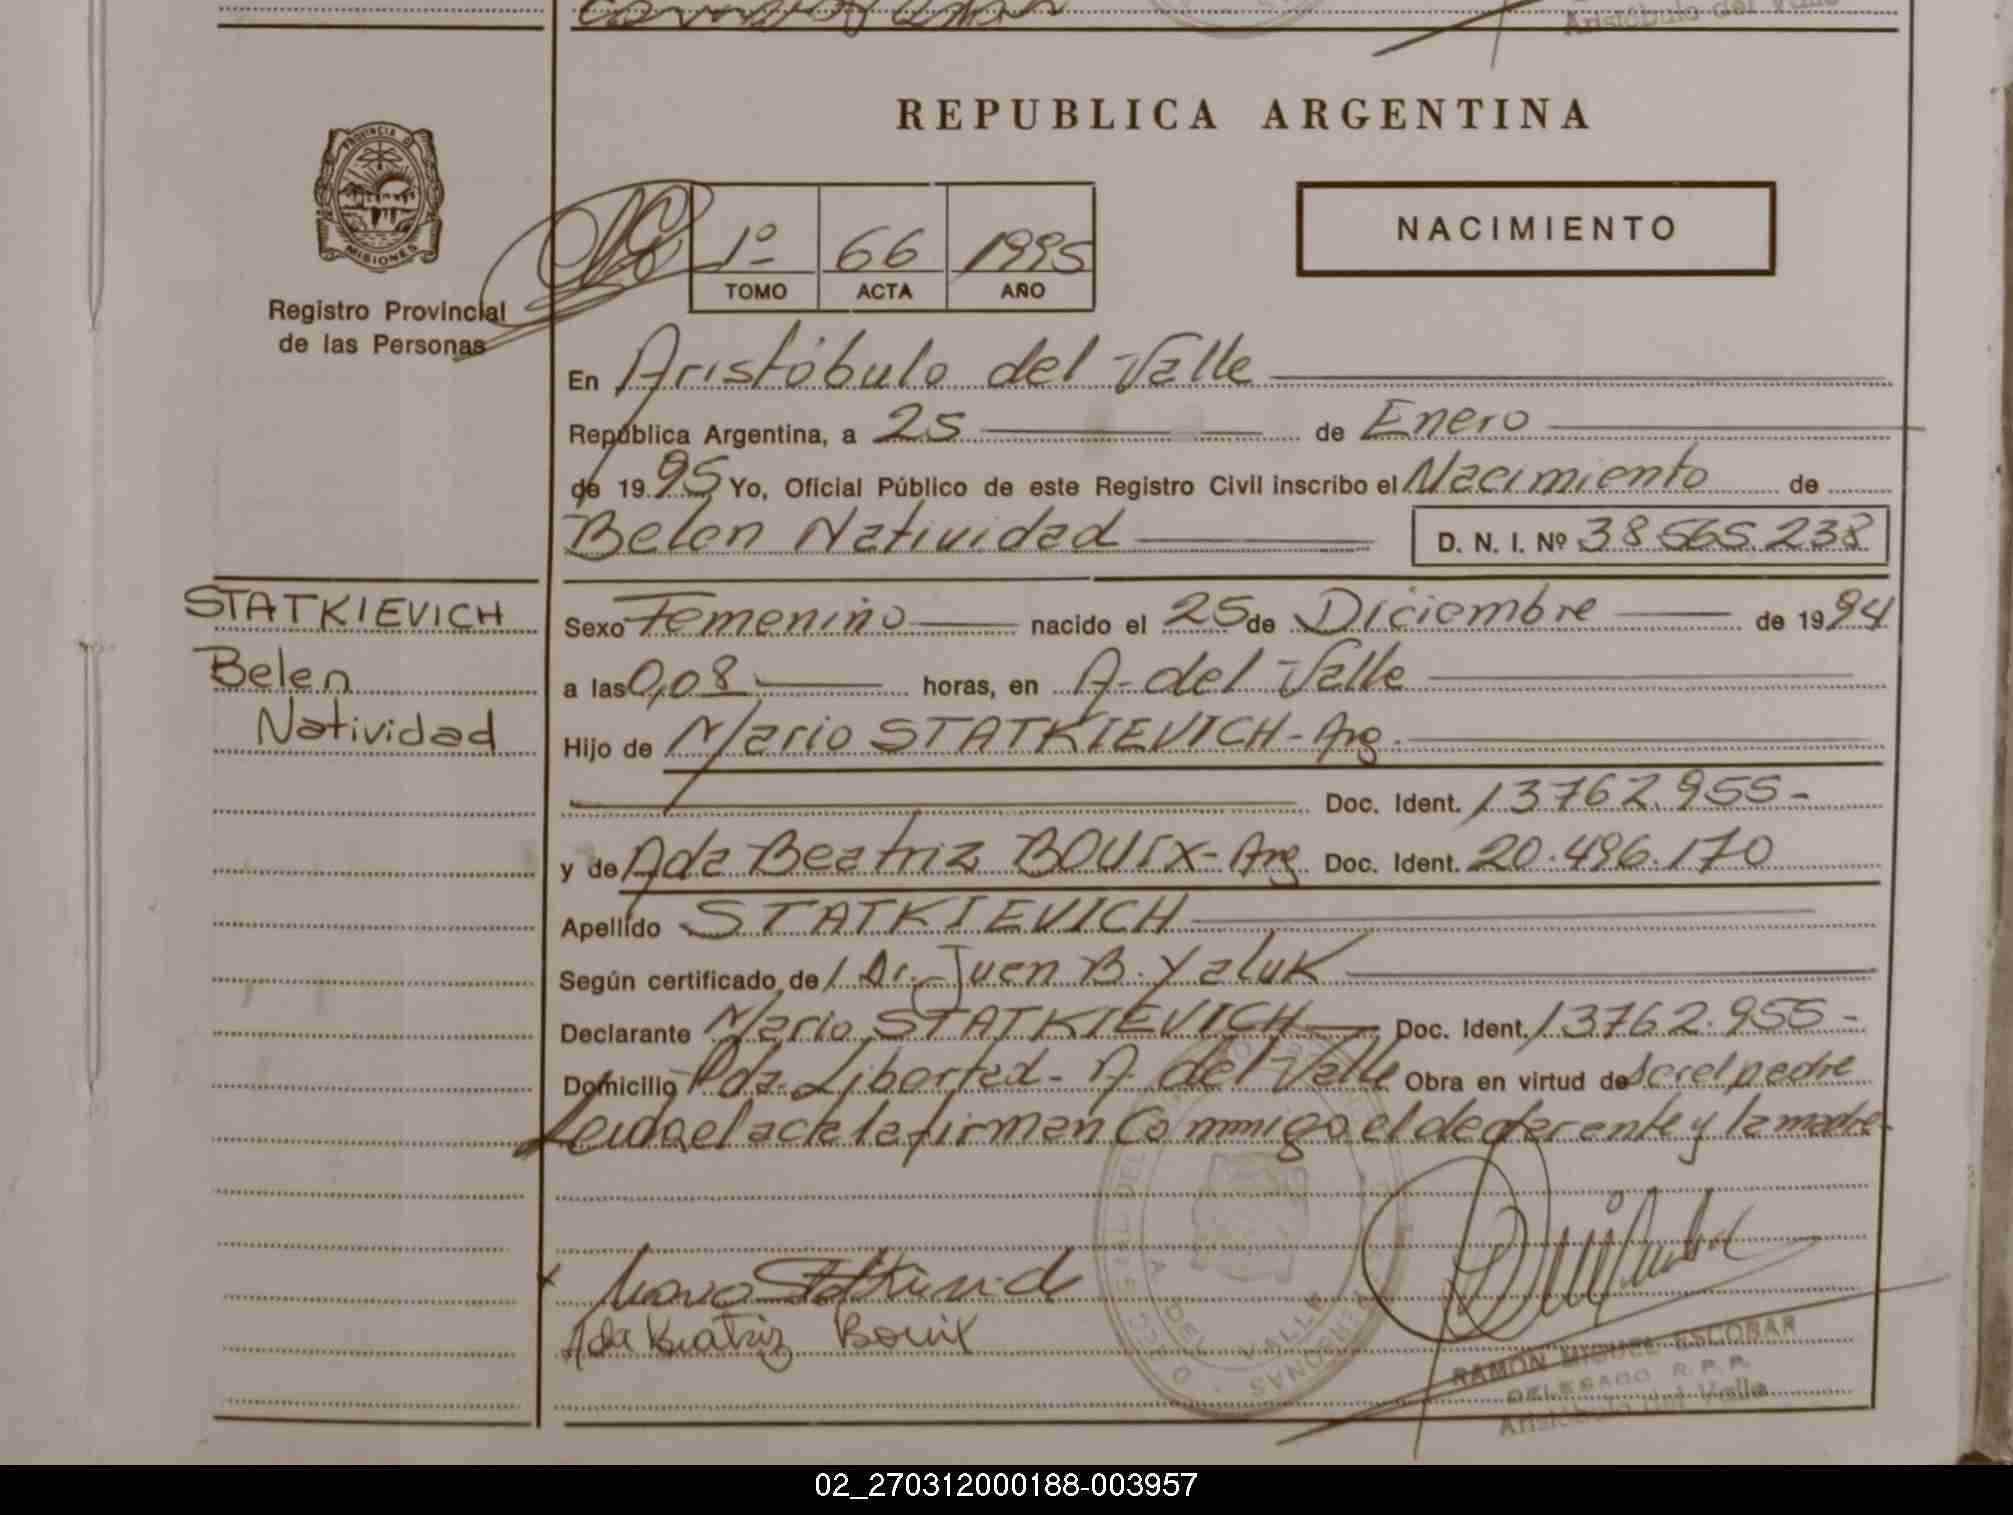 Aristóbulo del Valle
REPUBLICA ARGENTINA
PROVINCIA D
MISIONES
Registro Provincial
de las Personas
1º 66 1995
TOMO ACTA AÑO
NACIMIENTO
En Aristóbulo del Valle
República Argentina, a 25 de Enero
de 1995 Yo, Oficial Público de este Registro Civil inscribo el Nacimiento de
Belen Natividad D. N. I. Nº 38565238
STATKIEVICH
Belen
Natividad
Sexo Femenino nacido el 25 de Diciembre de 1994
a las 0,08 horas, en A. del Valle
Hijo de Mario STATKIEVICH - Arg.
Doc. Ident. 13762.955-
y de Ada Beatriz BOUIX - Arg Doc. Ident. 20.496.170
Apellido STATKIEVICH
Según certificado de Dr. Juan B. Yaluk
Declarante Mario STATKIEVICH Doc. Ident. 13762.955-
Domicilio Pda. Libertad - A del Valle Obra en virtud de ser el padre
Leida el acta la firman Conmigo el declarante y la madre-
A. DEL VALLE
PERSONAS
Ada Beatriz Bouix
RAMON MIGUEL ESCOBAR
DELEGADO R. P. P.
Aristóbulo del Valle
02_270312000188-003957